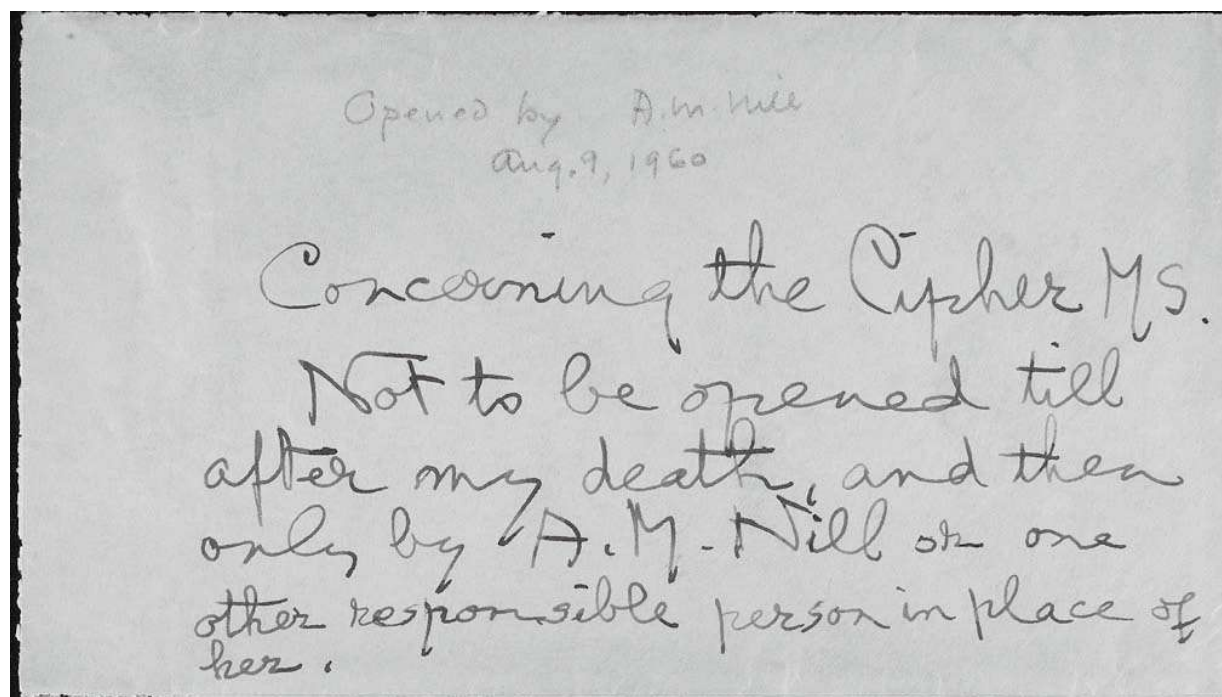 Opened by A.M. Nill
Aug. 9, 1960
Concerning the Cipher MS.
Not to be opened till
after my death, and then
only by A.M. Nill or one
other responsible person in place of
her.